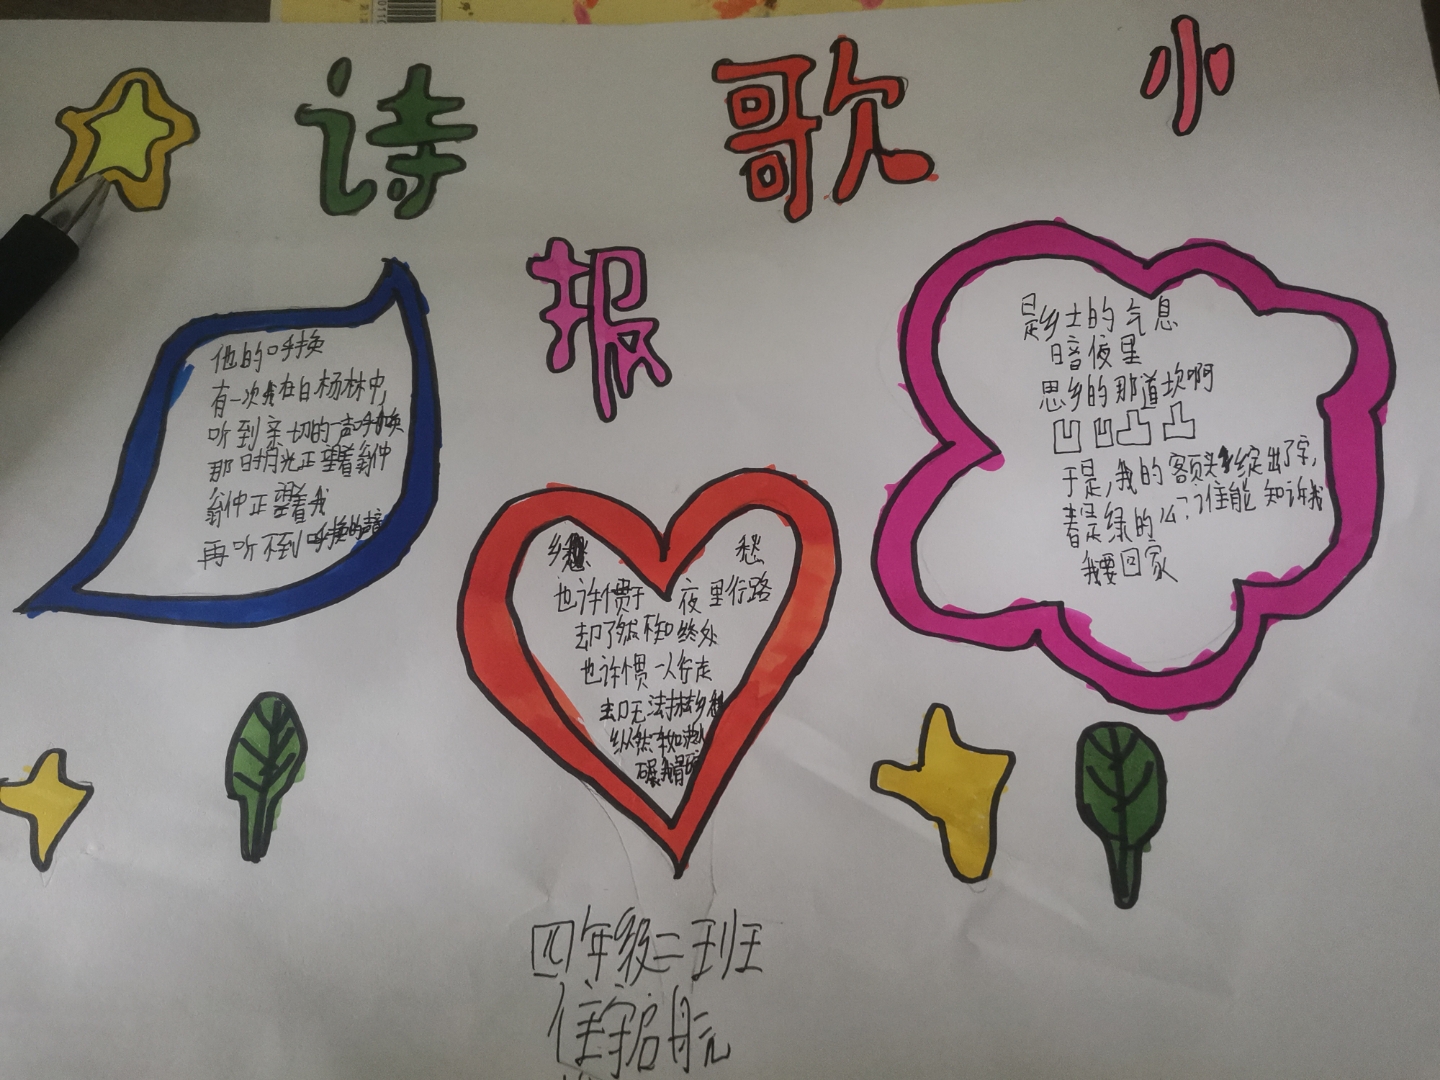 诗 歌 小
报
他的呼换
有一次我在白杨林中,
听到亲切的一声呼换
那时月光正望着翁仲
翁仲正望着我
再听不到呼换的
乡 愁
也许惯于 夜里行路
却了然不知终处
也许惯一人行走
却无法抹乡
纵然
碾我骨
是乡土的气息
暗夜里
思乡的那道坎啊
凹凹凸凸
于是,我的额头绽出了字,
春是绿的么?谁能知诉我
我要回家
四年级二班
启航